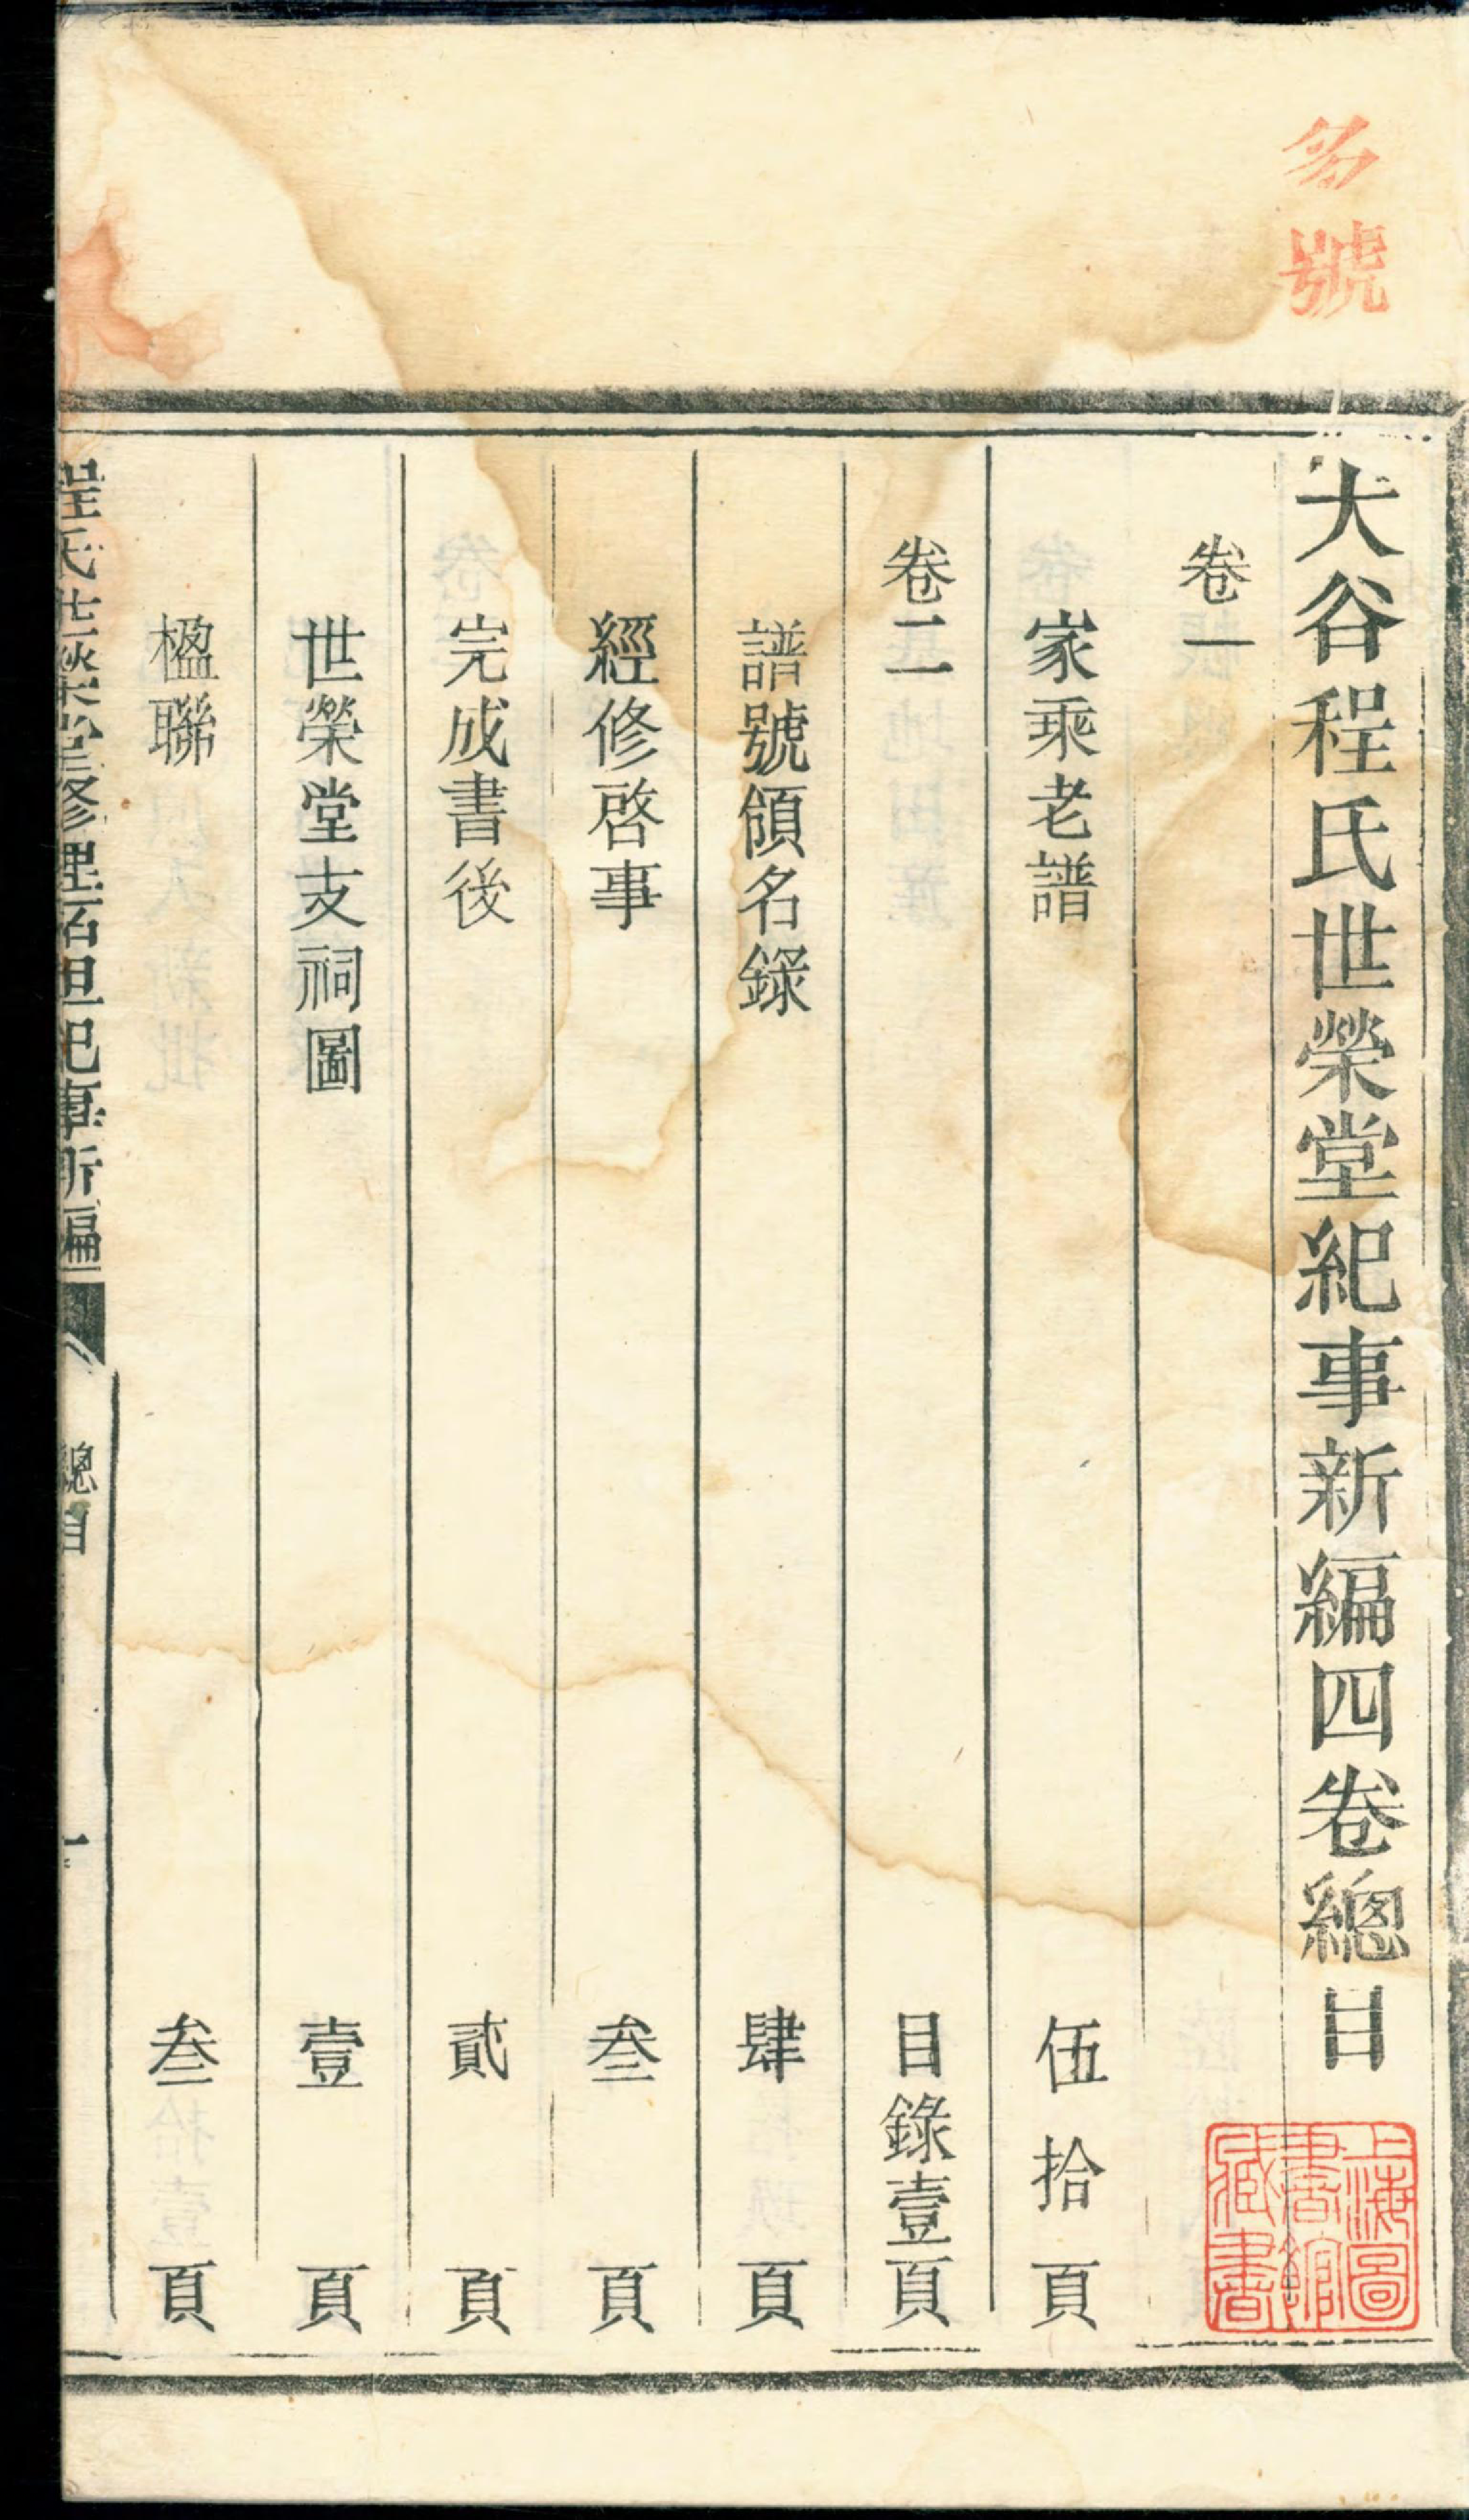 號
大谷程氏世榮堂紀事新編四卷總目
上海圖書館藏書
卷一
家乘老譜 伍拾頁
卷二 目錄壹頁
譜號領名錄 肆頁
經修啓事 叁頁
完成書後 貳頁
世榮堂支祠圖 壹頁
楹聯 叁頁
程氏世榮堂修理祀事新編 總目 一